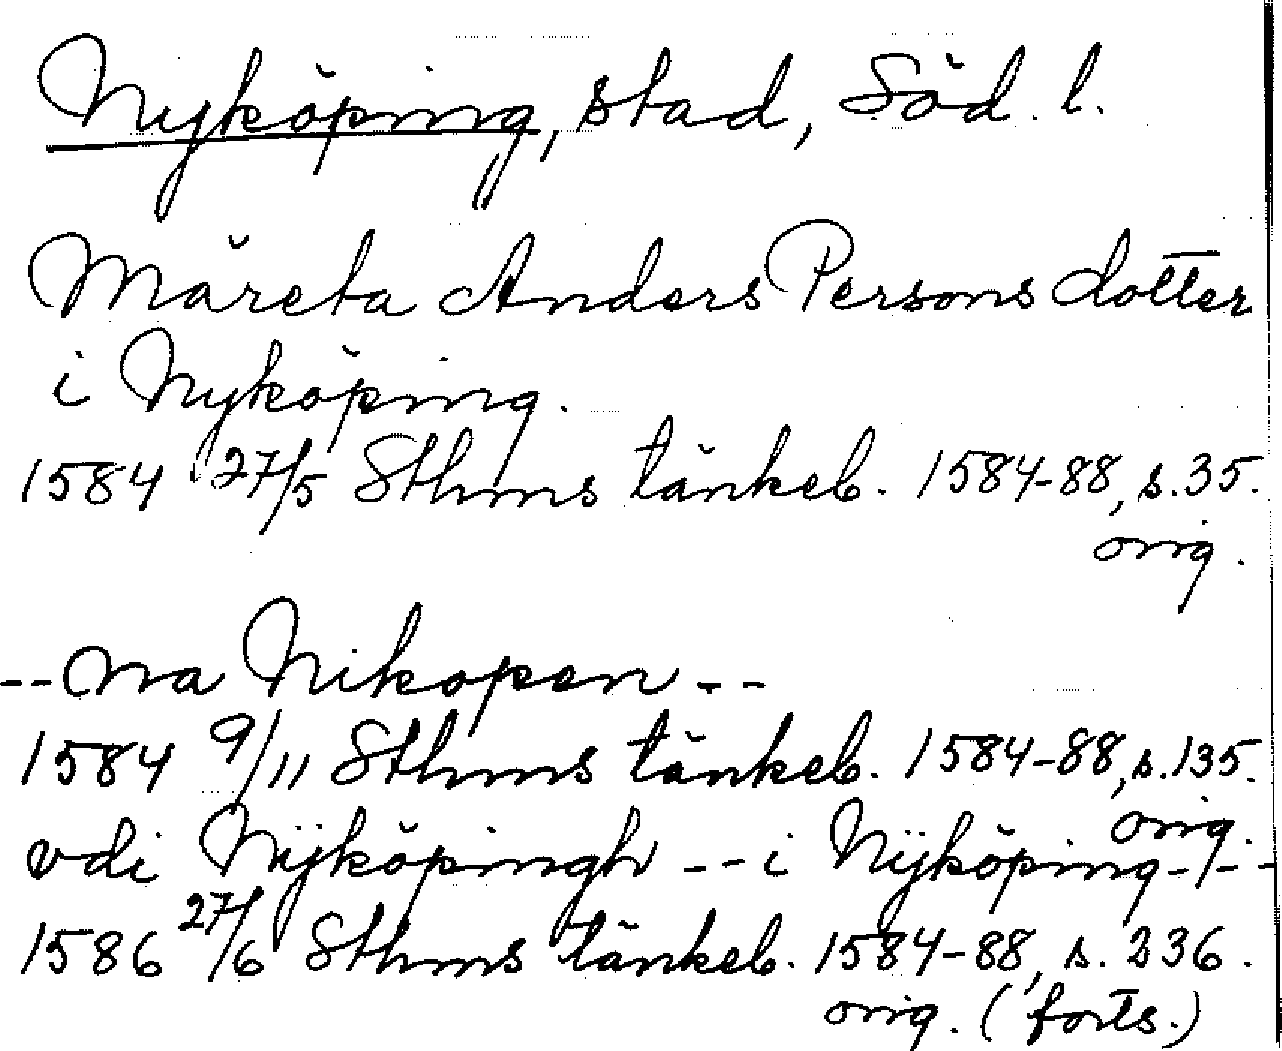 Nyköping, stad, Söd. l.
Märeta Anders Persons dotter
i Nyköping.
1584 27/5 Sthms tänkeb. 1584-88, s.35.
orig.
-- nra Nikopen --
1584 9/11 Sthms tänkeb. 1584-88, s.135.
orig.
vdi Nÿköpingh -- i Nÿköping --
1586 27/6 Sthms tänkeb. 1584-88, s. 236.
orig. (forts.)